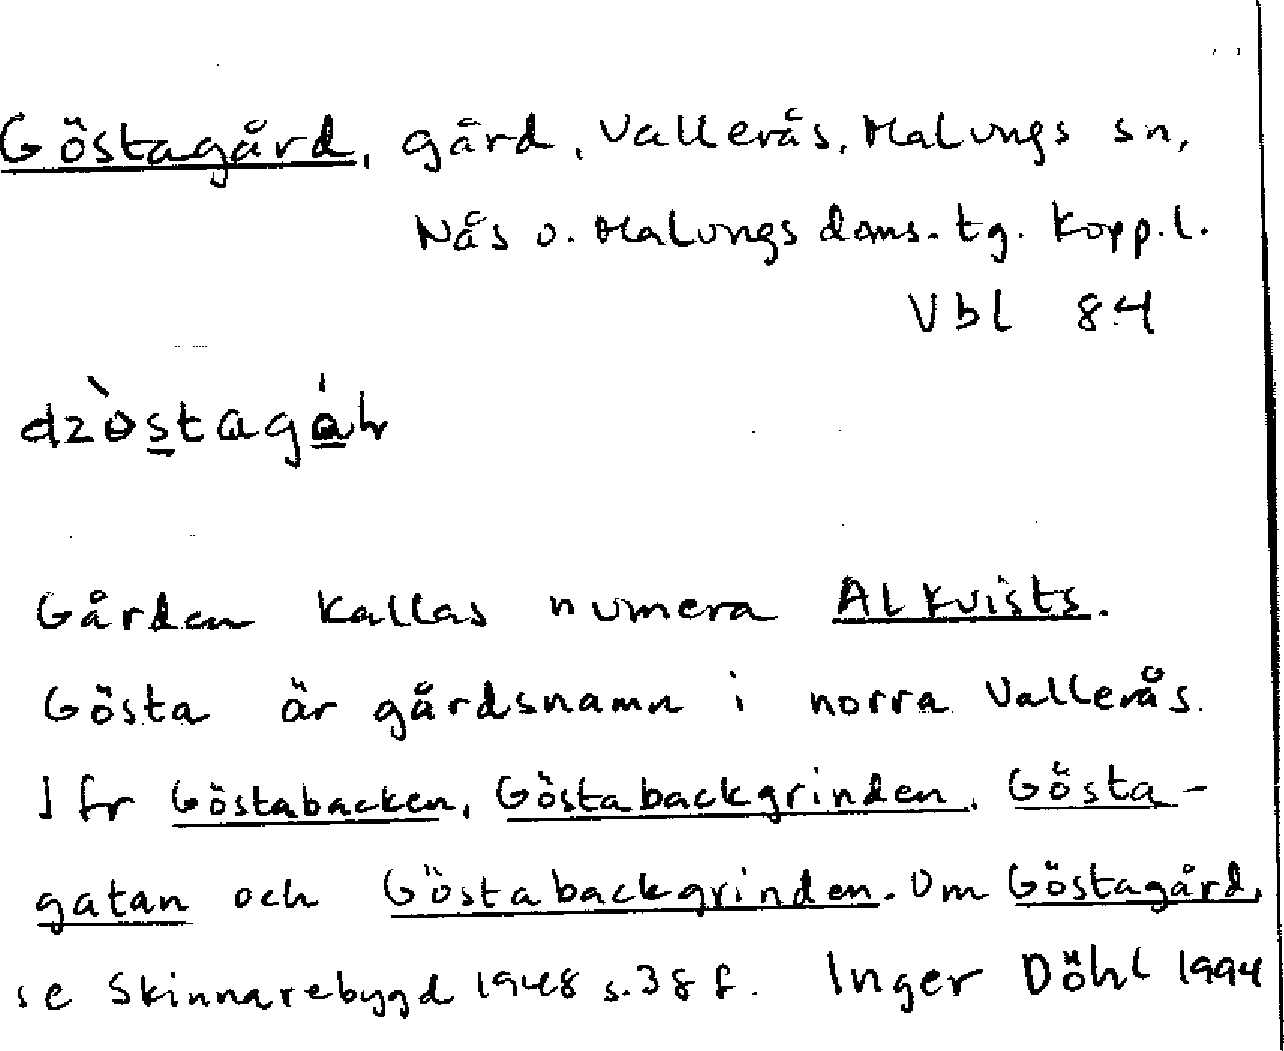 Göstagård, gård, Vallerås, Malungs sn,
Nås o. Malungs doms. tg. Kopp.l.
Vbl 84
dzɵ̀stagáɽ
Gården kallas numera Alkvists.
Gösta är gårdsnamn i norra Vallerås.
Jfr Göstabacken, Göstabackgrinden, Gösta-
gatan och Göstabackgrinden. Om Göstagård,
se Skinnarebygd 1948 s. 38 f. Inger Döhl 1994